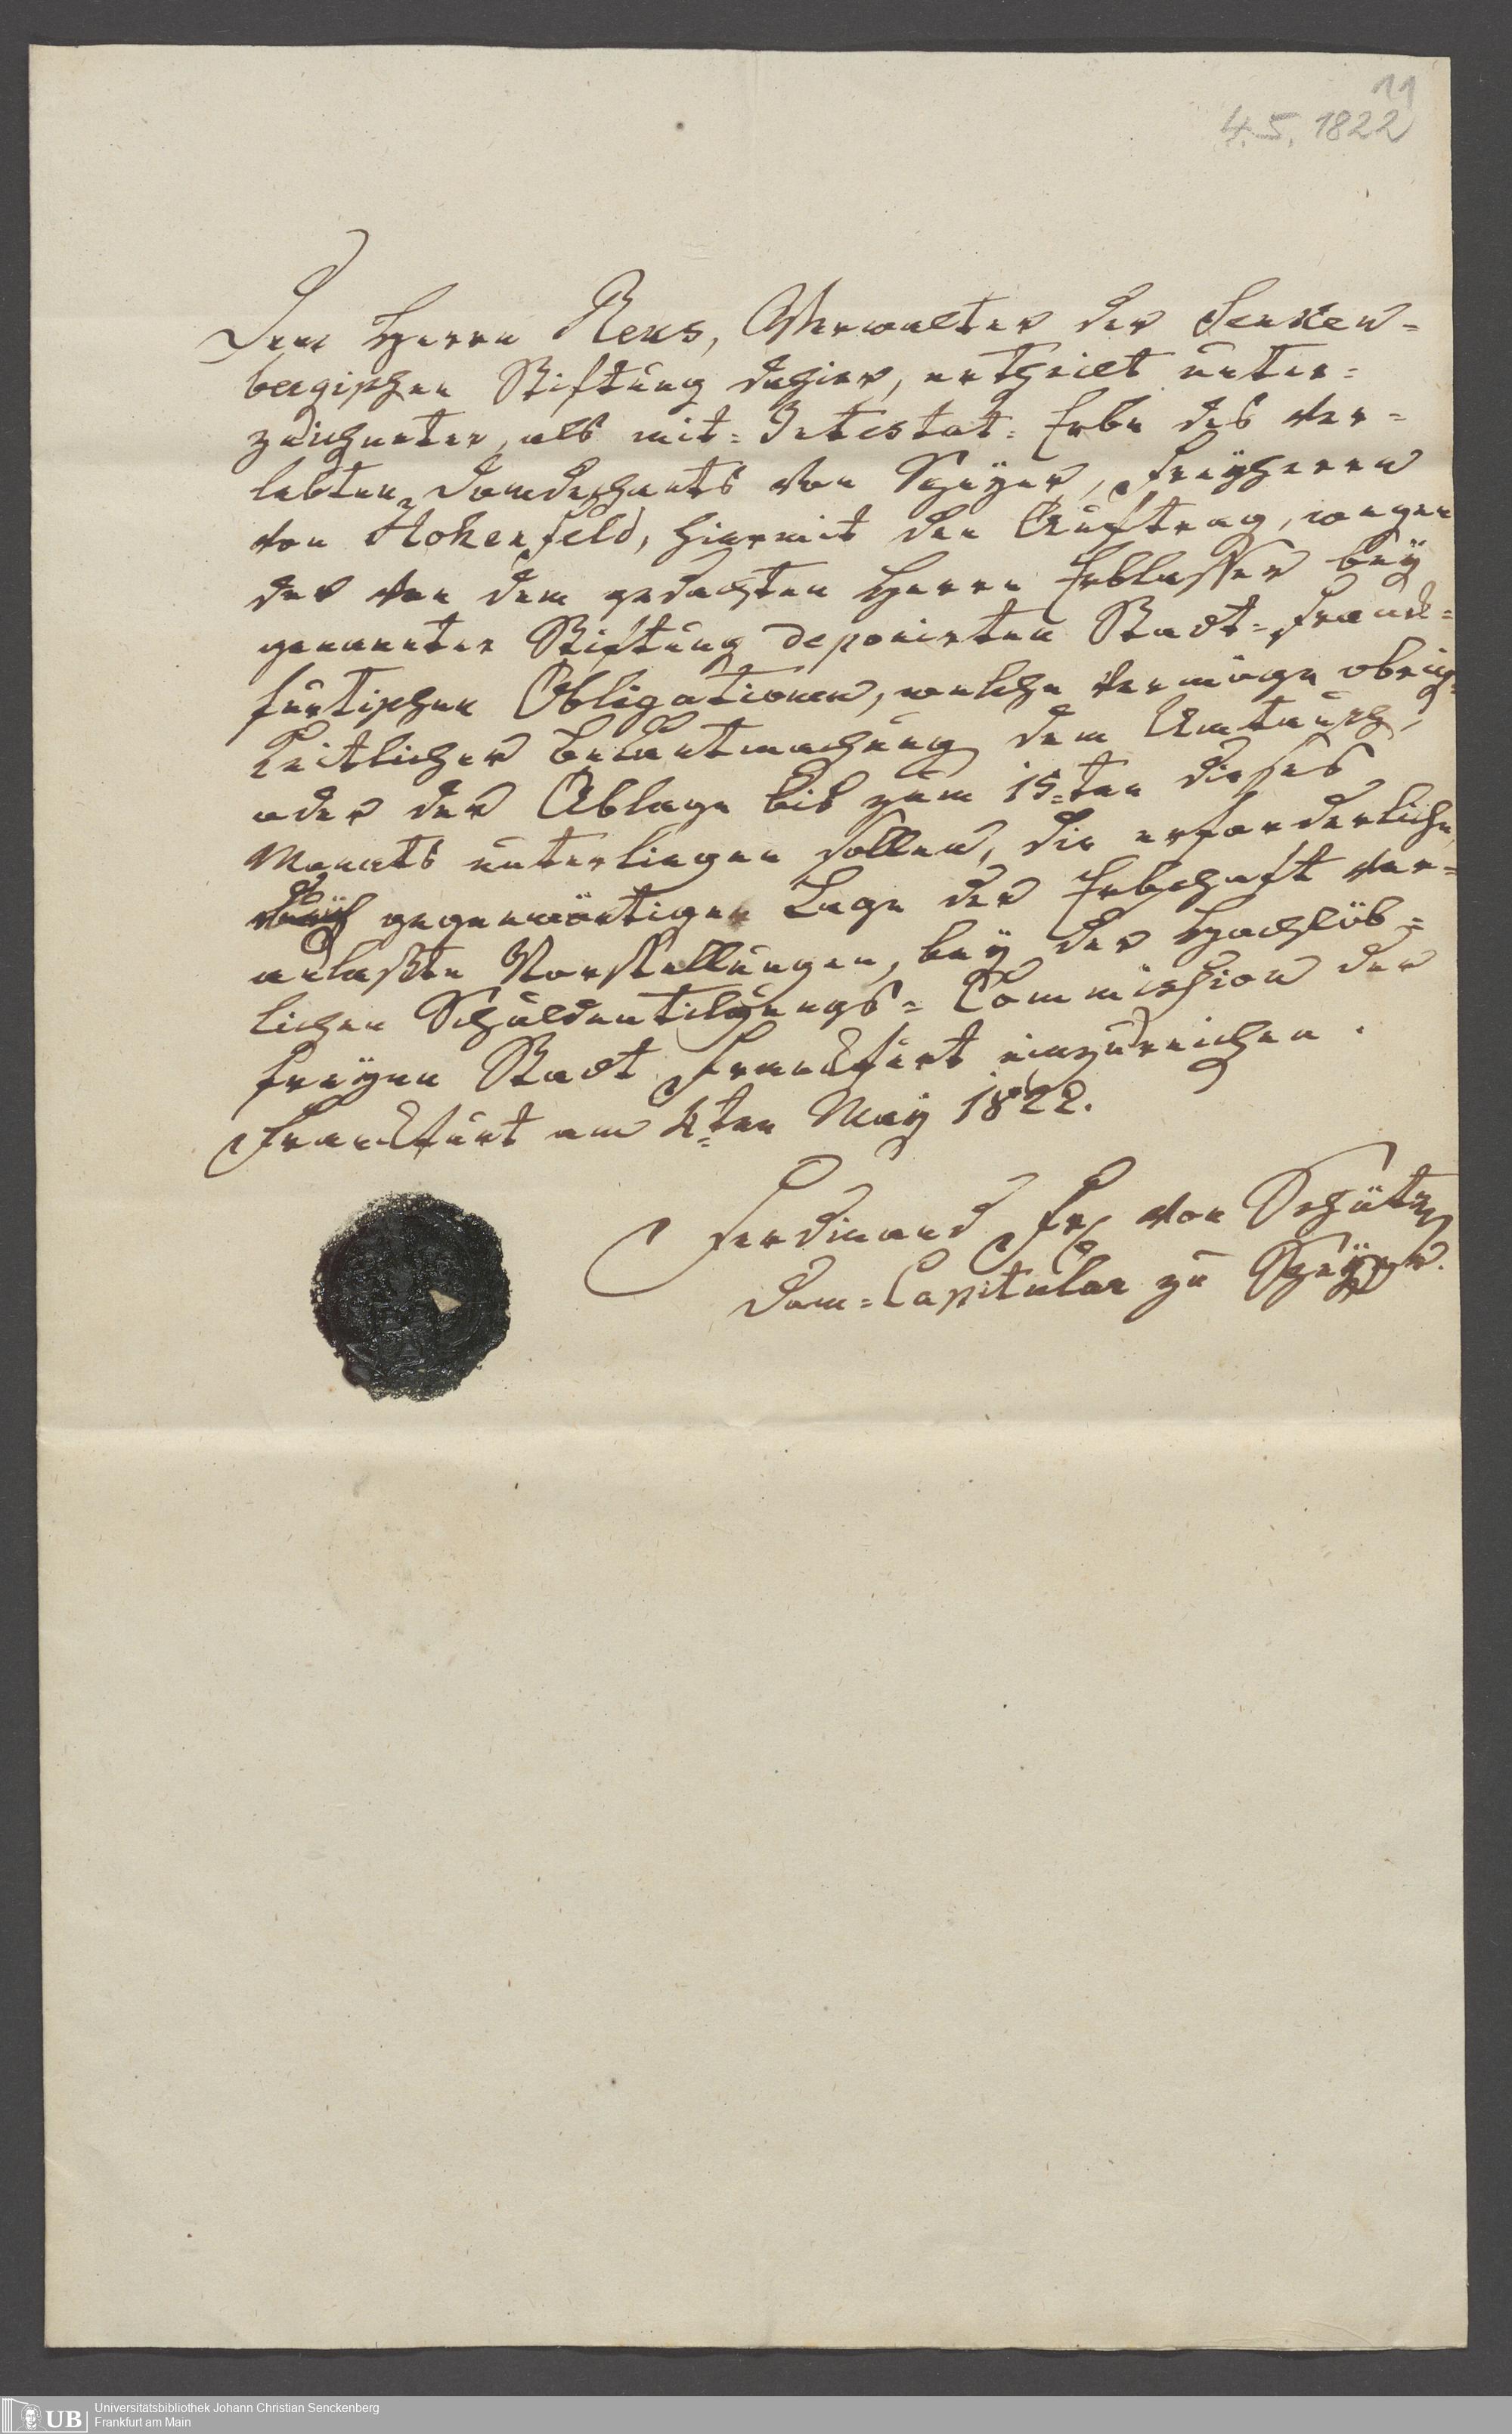 11
4.5.1822
Dem Herrn Rens, Verwalter der Senken=
bergischen Stiftung dahier, ertheilt unter=
zeichneter, als mit=Intestat=Erbe des ver=
lebten Domdechants von Speyer, Freyherrn
von Hohenfeld, hiermit den Auftrag, wegen
der von dem gedachten Herrn Erblasser bey
genannter Stiftung deponirten Stadt=Franck=
furtischen Obligationen, welche vermöge obrig=
keitlicher Bekantmachung dem Umtausch,
oder der Ablage bis zum 15=ten dieses
Monats unterliegen sollen, die erforderliche,
gegenwärtiger Lage der Erbschaft ver=
anlaßte Vorstellungen, bey der Hochlöb=
lichen Schuldentilgungs=Commission der
freyen Stadt Franckfurt einzureichen.
Franckfurt am 4=ten May 1822.
Ferdinand Frh von Schütz
Dom=Capitular zu Speyer.
UB
Universitätsbibliothek Johann Christian Senckenberg
Frankfurt am Main